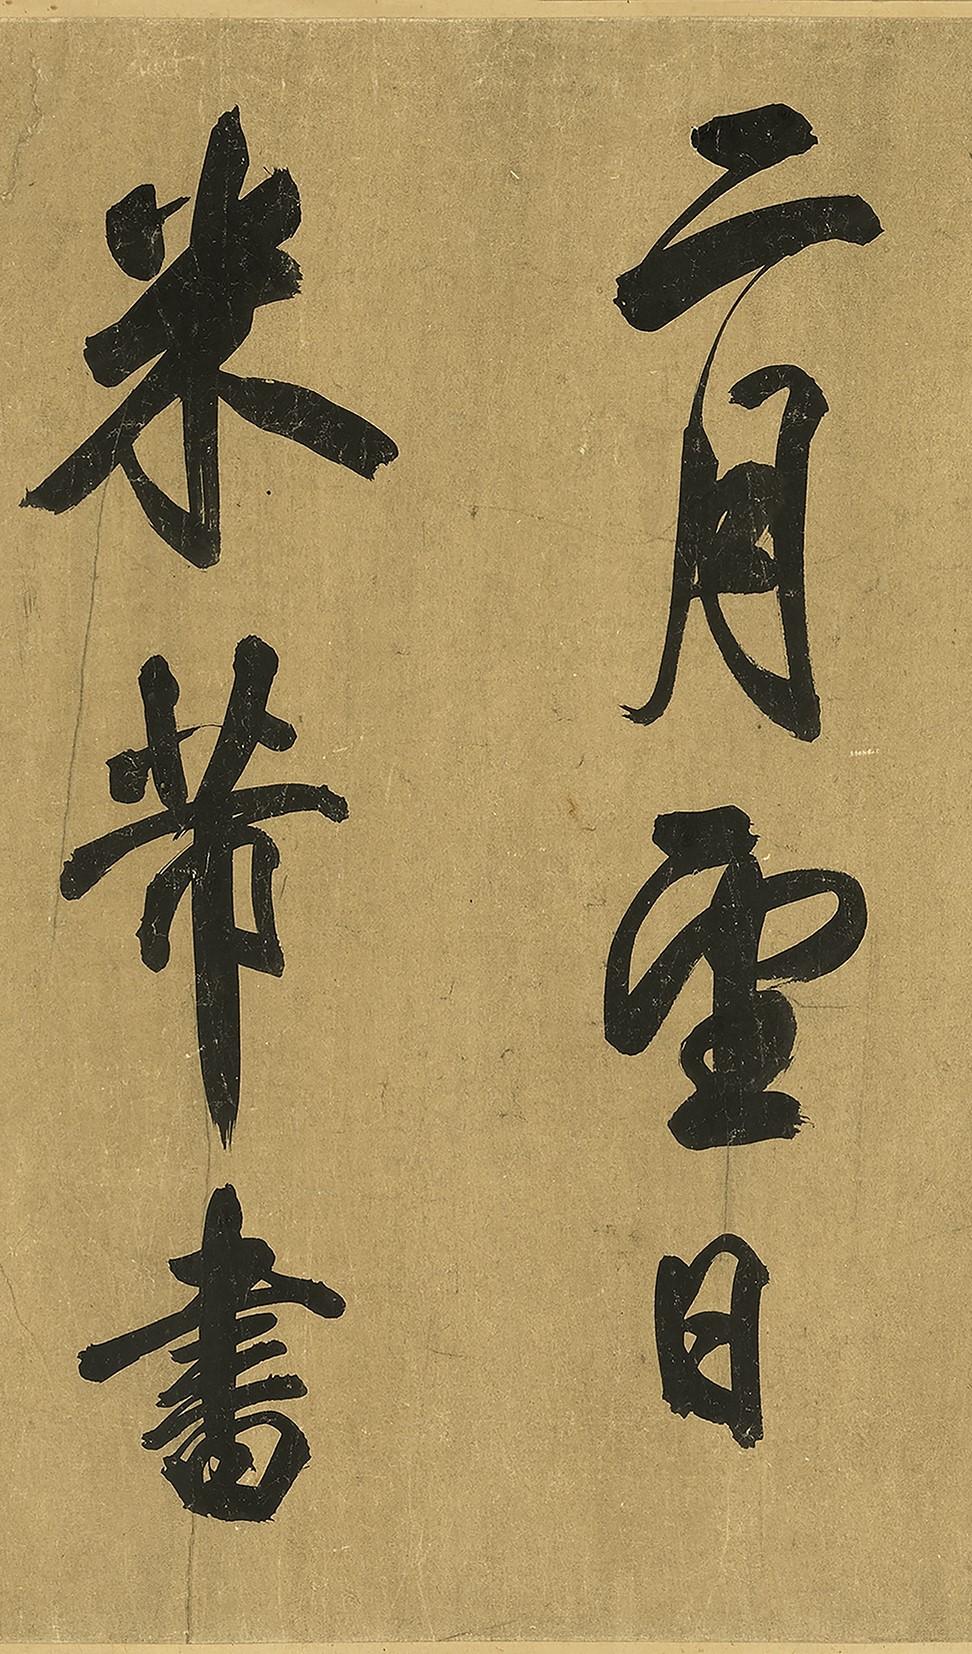 二月望日
米芾書